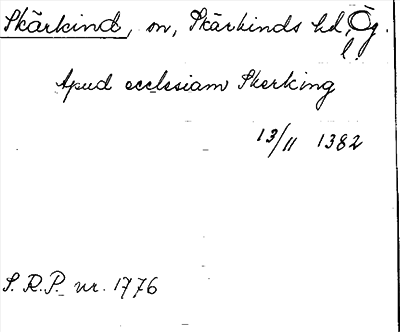 Skärkind, on, Skärkinds hd, Ög.
l.
Apud ecclesiam Skerking
13/11 1382
S.R.P. nr. 1776